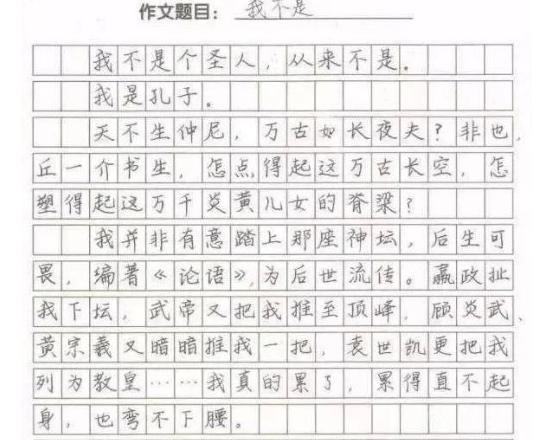 作文题目：我不是
我不是个圣人，从来不是。
我是孔子。
天不生仲尼，万古如长夜夫？非也，
丘一介书生，怎点得起这万古长空，怎
塑得起这万千炎黄儿女的脊梁？
我并非有意踏上那座神坛，后生可
畏，编著《论语》，为后世流传。嬴政扯
我下坛，武帝又把我推至顶峰，顾炎武、
黄宗羲又暗暗推我一把，袁世凯更把我
列为教皇……我真的累了，累得直不起
身，也弯不下腰。